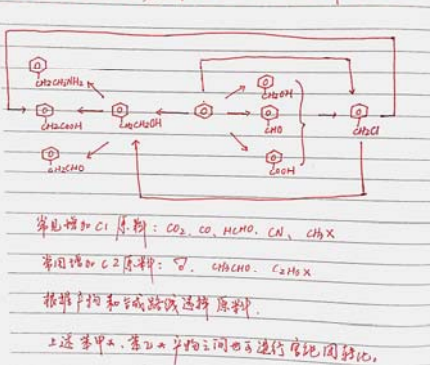 CH2CH2NH2
CH2OH
CH2COOH
CH2CH2OH
CHO
CH2Cl
CH2CHO
COOH
常见增加C1原料：CO2、CO、HCHO、CN、CH3X
常用增加C2原料：、CH3CHO、C2H5X
根据产物和合成路线选择原料.
上述苯甲*、苯乙*产物之间也可进行官能团转化.